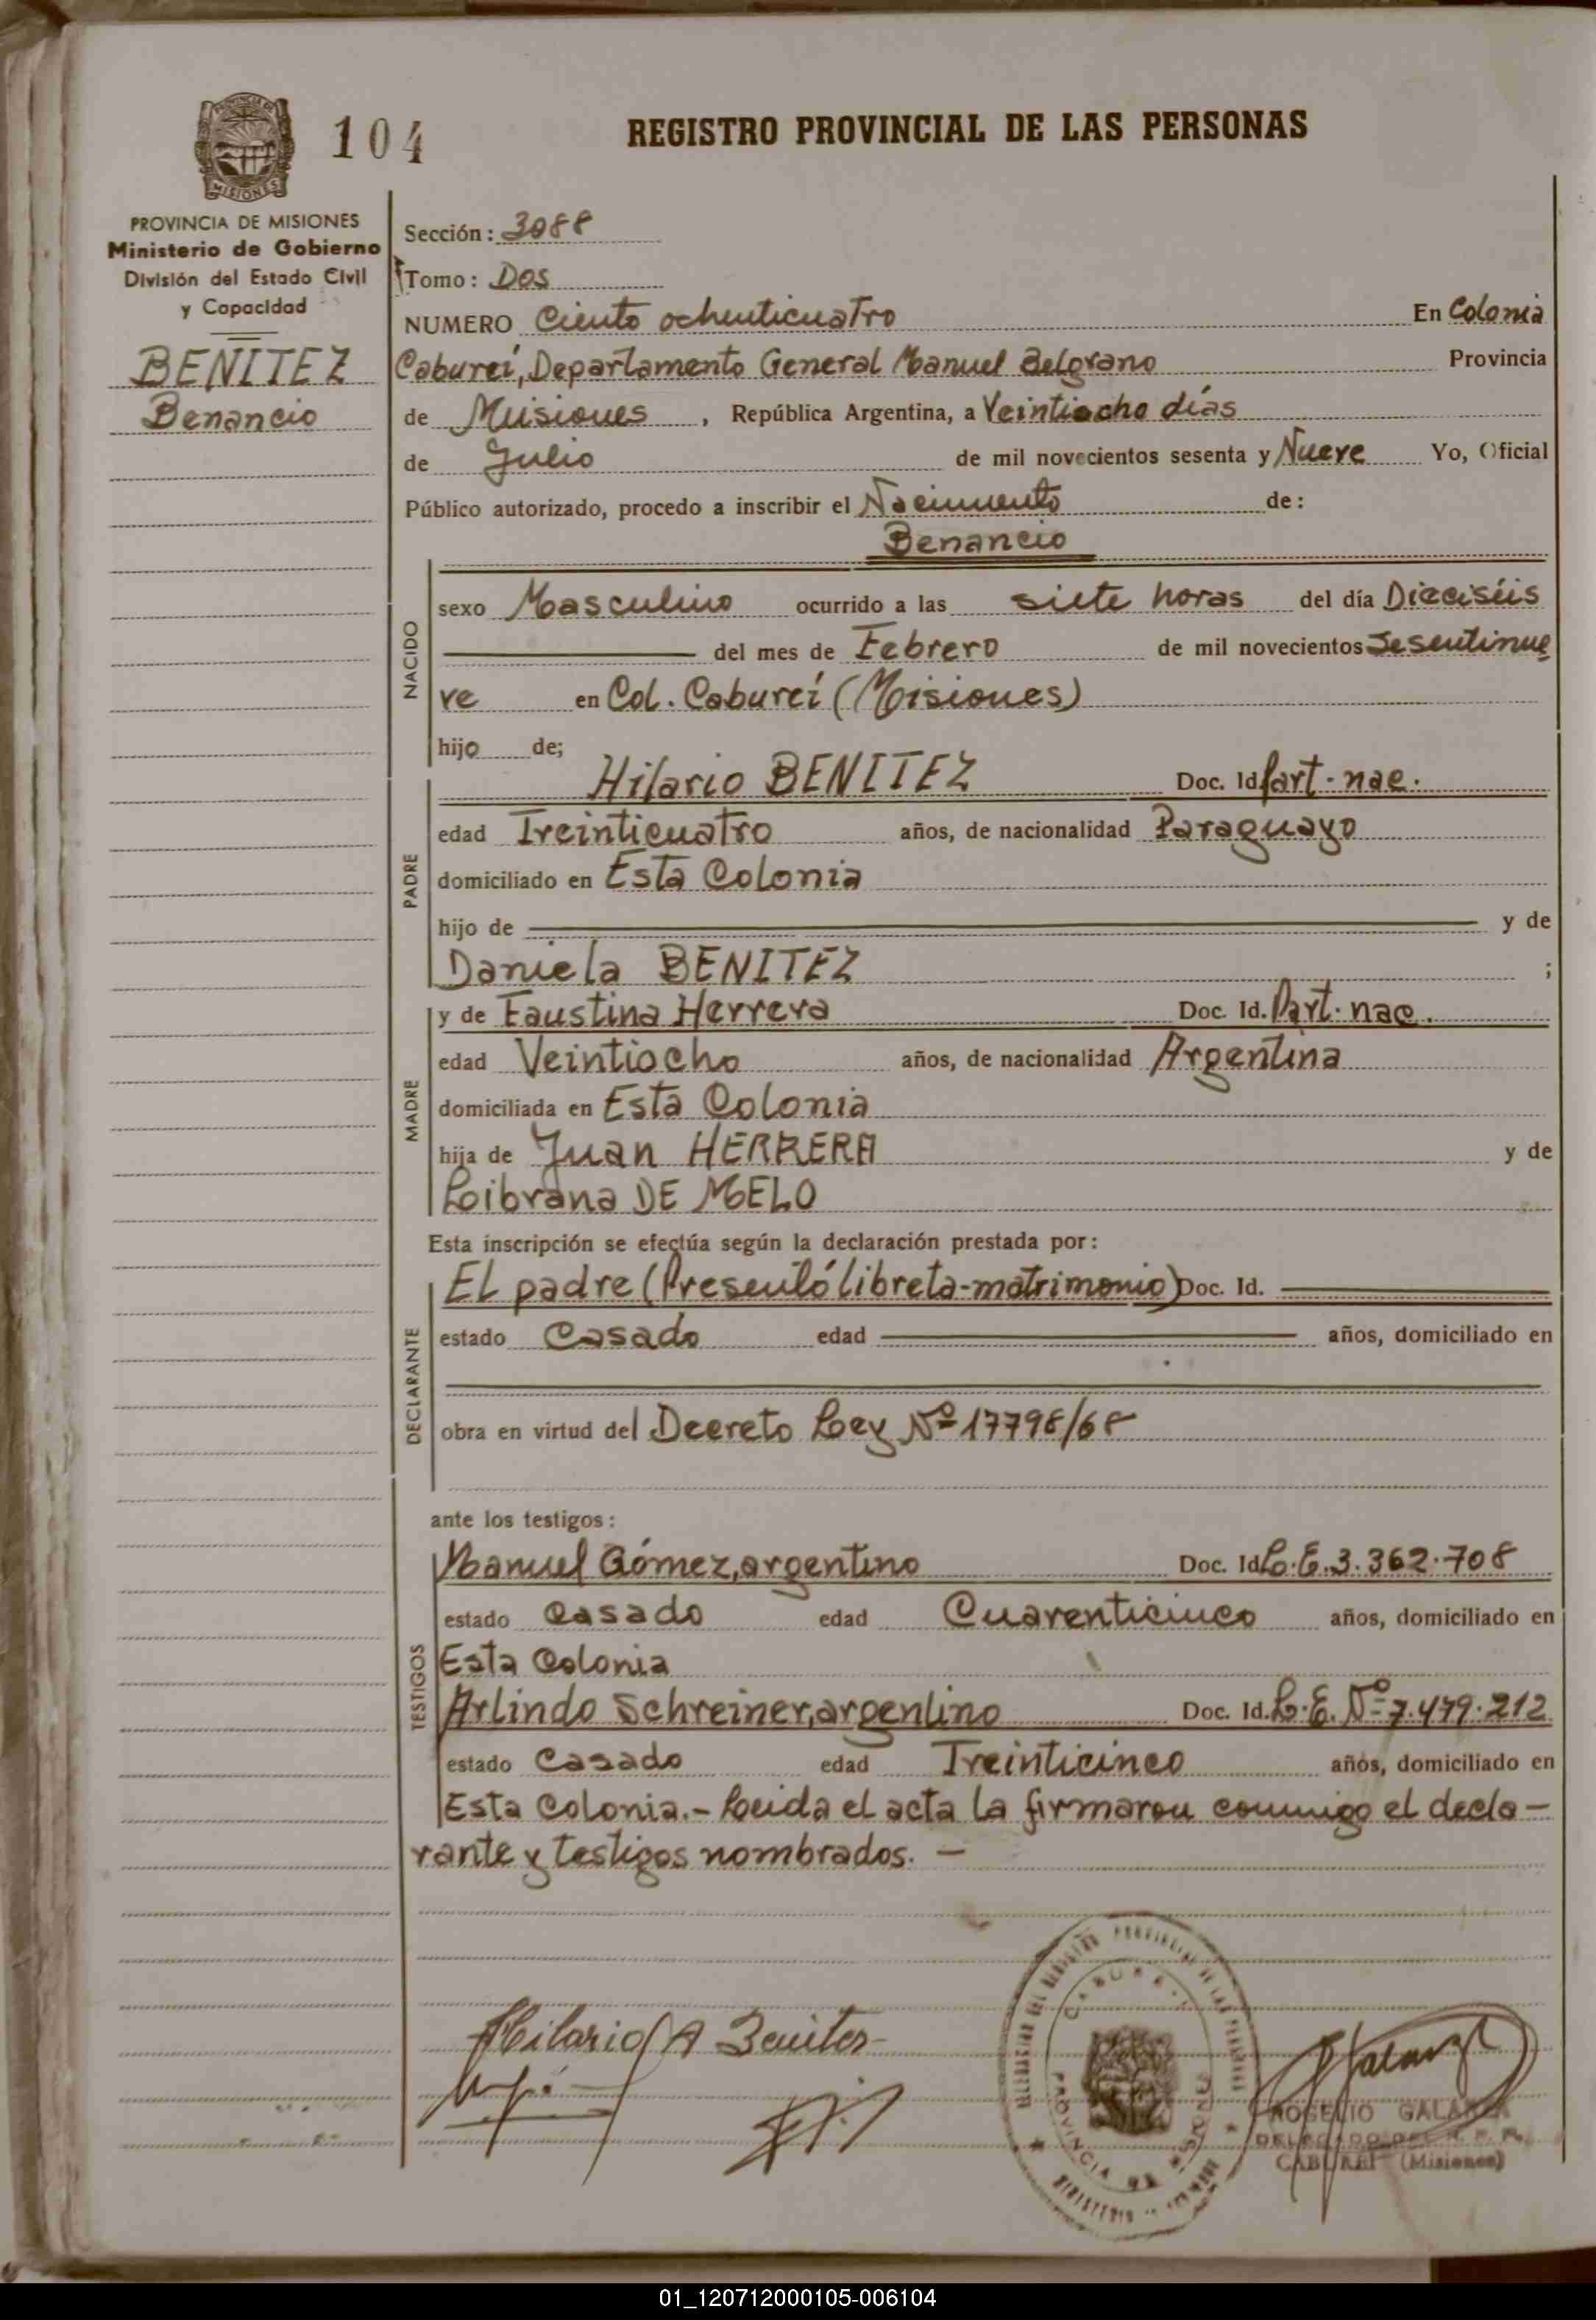 104
REGISTRO PROVINCIAL DE LAS PERSONAS
PROVINCIA DE MISIONES
Ministerio de Gobierno
División del Estado Civil
y Capacidad
BENITEZ
Benancio
Sección: 3088
Tomo: Dos
NUMERO Ciento ochenticuatro En Colonia
Cabureí, Departamento General Manuel Belgrano Provincia
de Misiones, República Argentina, a Veintiocho días
de Julio de mil novecientos sesenta y Nueve Yo, Oficial
Público autorizado, procedo a inscribir el Nacimiento de:
Benancio
NACIDO
sexo Masculino ocurrido a las siete horas del día Dieciséis
del mes de Febrero de mil novecientos Sesentinue
ve en Col. Cabureí (Misiones)
hijo de;
PADRE
Hilario BENITEZ Doc. Id. Part. nac.
edad Treinticuatro años, de nacionalidad Paraguayo
domiciliado en Esta Colonia
hijo de y de
Daniela BENITEZ ;
MADRE
y de Faustina Herrera Doc. Id. Part. nac.
edad Veintiocho años, de nacionalidad Argentina
domiciliada en Esta Colonia
hija de Juan HERRERA y de
Librana DE MELO
Esta inscripción se efectúa según la declaración prestada por:
DECLARANTE
El padre (Presentó libreta-matrimonio) Doc. Id.
estado Casado edad años, domiciliado en
obra en virtud del Decreto Ley Nº 17798/68
ante los testigos:
TESTIGOS
Manuel Gómez, argentino Doc. Id. L.E. 3.362.708
estado Casado edad Cuarenticinco años, domiciliado en
Esta Colonia
Arlindo Schreiner, argentino Doc. Id. L.E. Nº 7.479.212
estado Casado edad Treinticinco años, domiciliado en
Esta Colonia.- Leída el acta la firmaron conmigo el decla-
rante y testigos nombrados. -
Hilario A Benites
ROGELIO GALARZA
DELEGADO DEL R. P. P.
CABUREI (Misiones)
PROVINCIA DE MISIONES
01_120712000105-006104